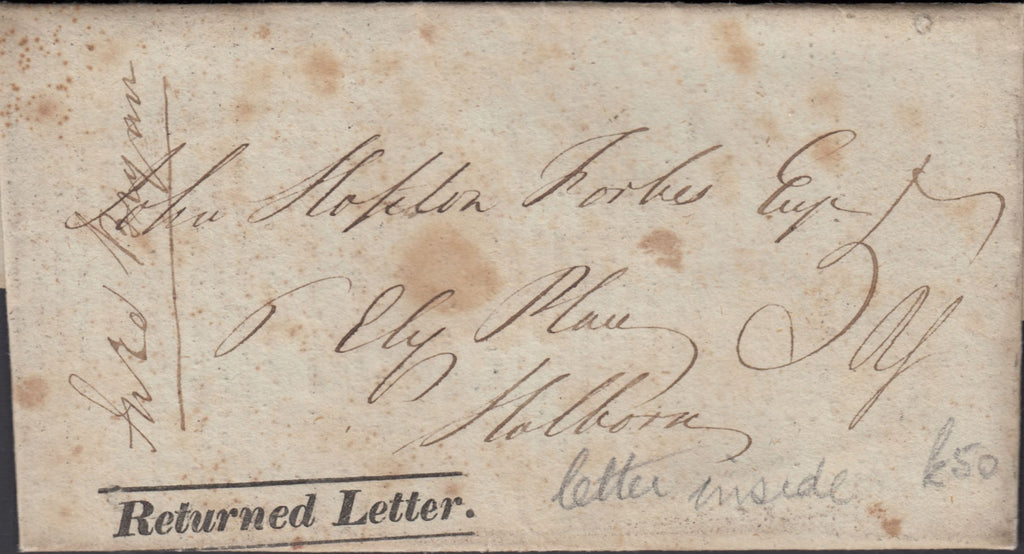 John Hopton Forbes Esqr
6 Ely Place
Holborn
Returned Letter.
letter inside
£50